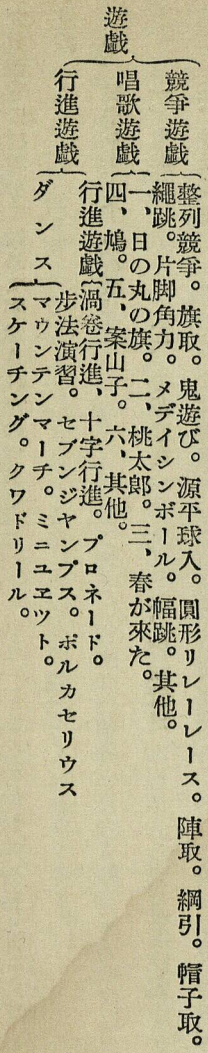 遊戯
競爭遊戯
整列競爭。旗取。鬼遊び。源平球入。圓形リレーレース。陣取。綱引。帽子取。
繩跳。片脚角力。メデイシンボール。幅跳。其他。
唱歌遊戯
一、日の丸の旗。二、桃太郎。三、春が來た。
四、鳩。五、案山子。六、其他。
行進遊戯
行進遊戯
渦卷行進、十字行進。プロネード。
步法演習。セブンジヤンプス。ポルカセリウス
ダンス
マウンテンマーチ。ミニユヱツト。
スケーチング。クワドリール。